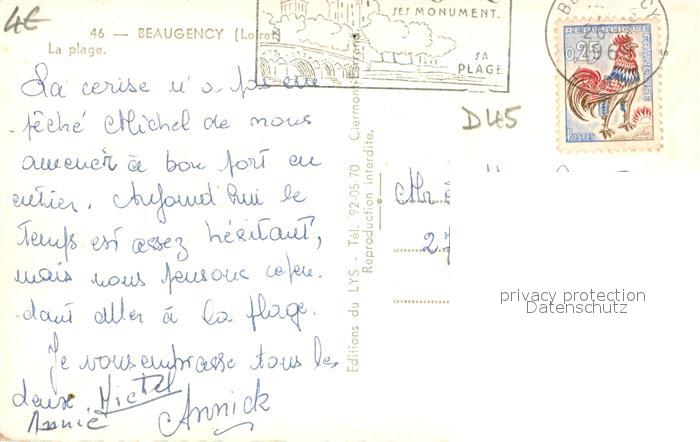 4€
46 — BEAUGENCY (Loiret)
La plage.
SES MONUMENT.
SA
PLAGE
BEAUGENCY
REPUBLIQUE FRANÇAISE
0,25
POSTES
D45
La cerise n'a pas em
-pêché Michel de nous
amener à bon port en
entier. Aujourd'hui le
temps est assez hésitant,
mais nous pensons cepen-
-dant aller à la plage.
Je vous embrasse tous les
deux. Michel
Annie Annick
Editions du LYS - Tél. 92-05-70 Clermont-Ferrand
Reproduction interdite.
Mr &
27
privacy protection
Datenschutz